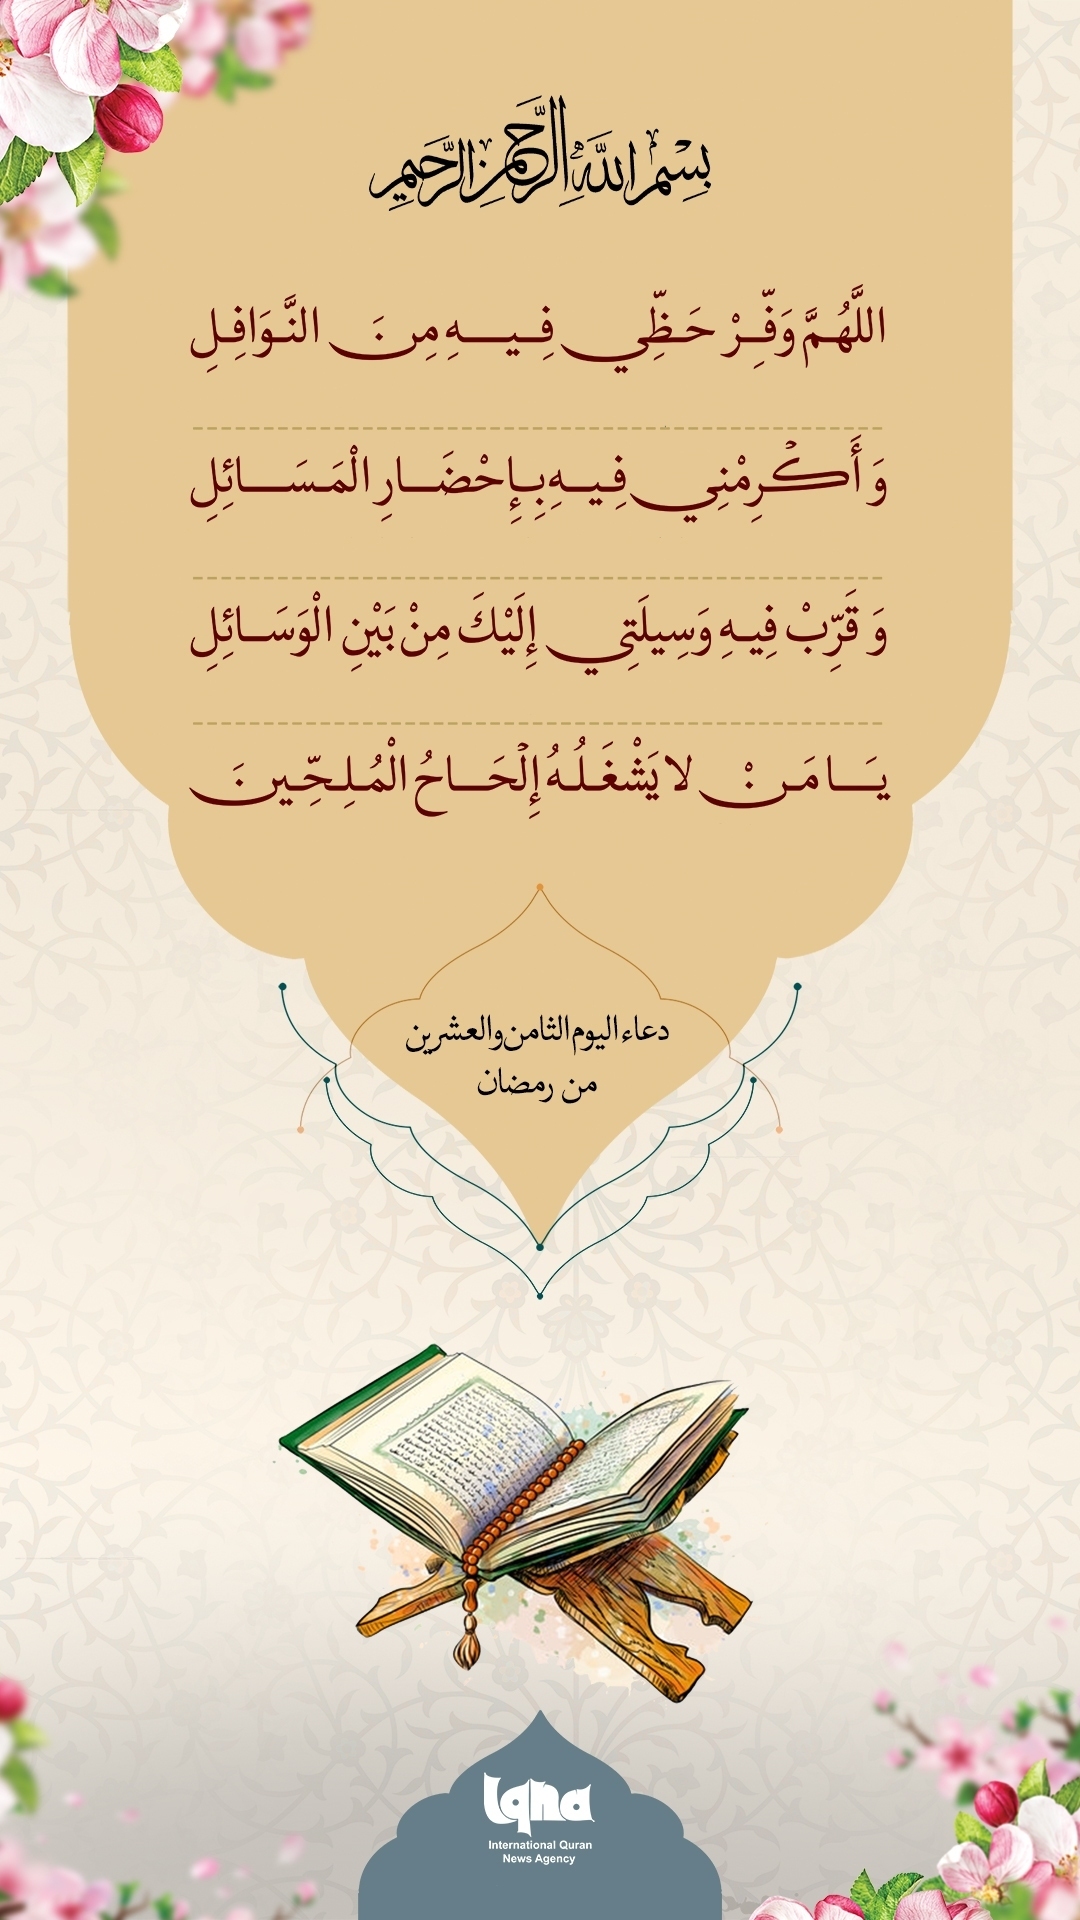 بِسْمِ اللَّهِ الرَّحْمَنِ الرَّحِيمِ
اللَّهُمَّ وَفِّرْ حَظِّي فِيهِ مِنَ النَّوَافِلِ
وَ أَكْرِمْنِي فِيهِ بِإِحْضَارِ الْمَسَائِلِ
وَ قَرِّبْ فِيهِ وَسِيلَتِي إِلَيْكَ مِنْ بَيْنِ الْوَسَائِلِ
يَا مَنْ لا يَشْغَلُهُ إِلْحَاحُ الْمُلِحِّينَ
دعاء اليوم الثامن والعشرين
من رمضان
iqna
International Quran
News Agency